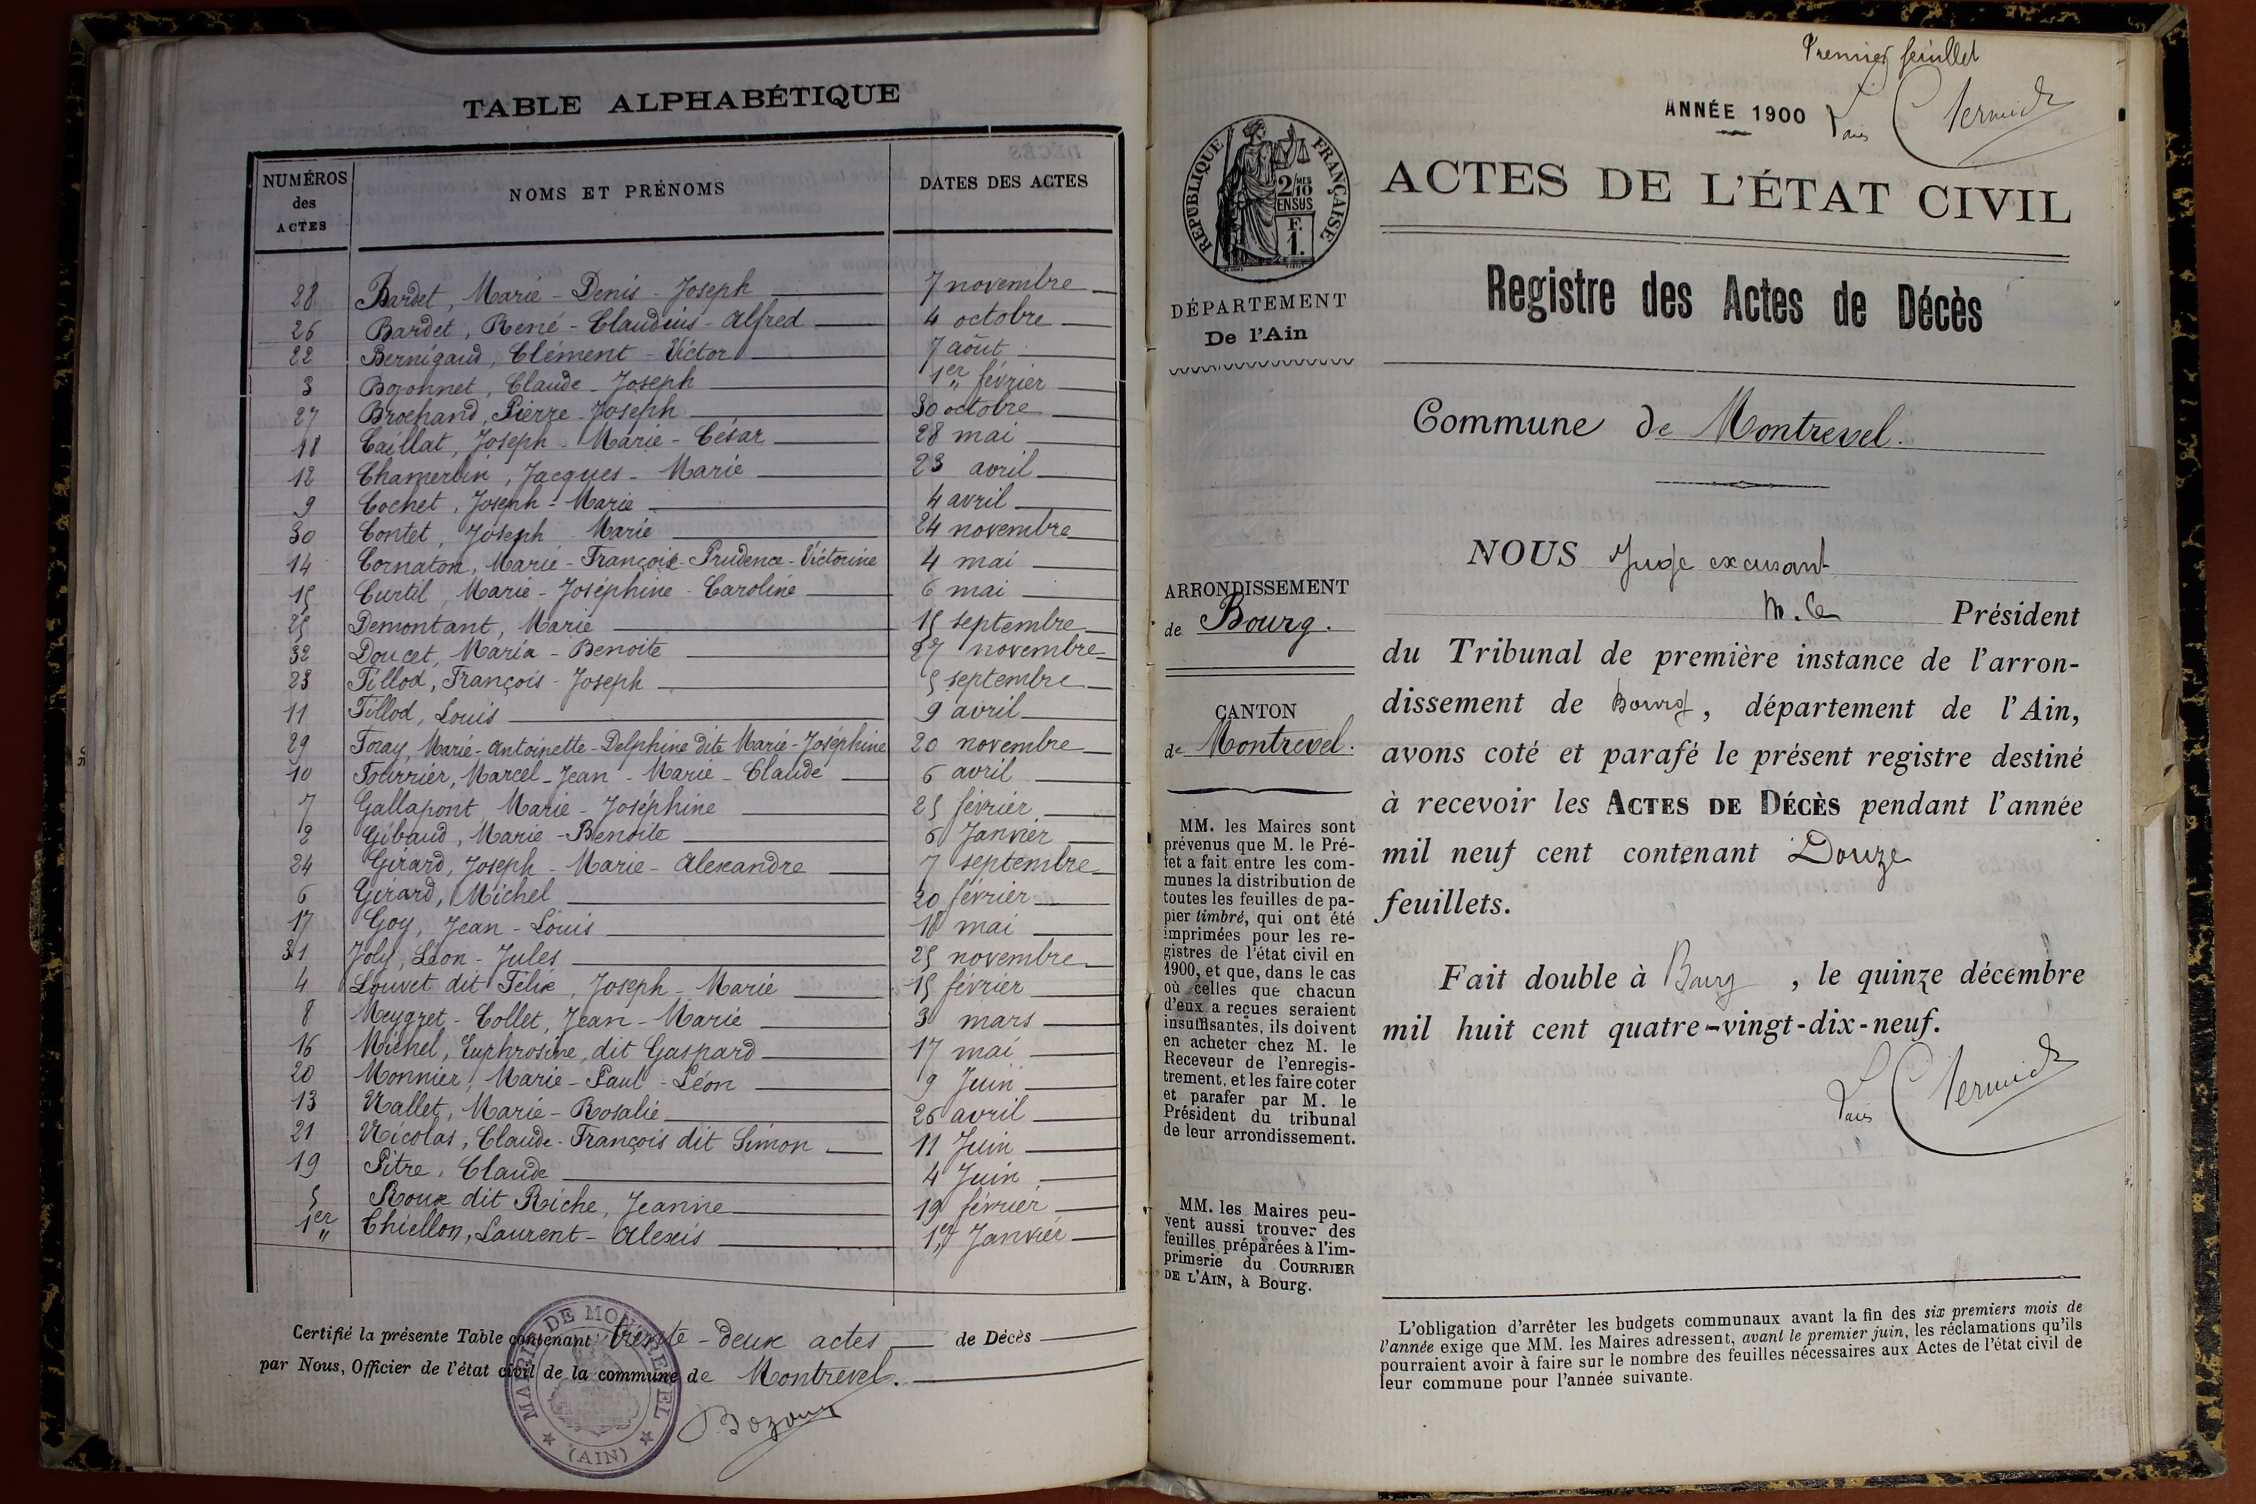 TABLE ALPHABÉTIQUE
NUMÉROS
des
ACTES
NOMS ET PRÉNOMS
DATES DES ACTES
28 Bardet, Marie - Denis - Joseph 7 novembre
26 Bardet, René - Claudius - Alfred 4 octobre
22 Bernigaud, Clément - Victor 7 août
3 Bozonnet, Claude - Joseph 1er février
27 Brochand, Pierre - Joseph 30 octobre
18 Caillat, Joseph - Marie - César 28 mai
12 Chamerlin, Jacques - Marie 23 avril
9 Cochet, Joseph - Marie 4 avril
30 Contet, Joseph Marie 24 novembre
14 Cornaton, Marie - Françoise - Prudence - Victorine 4 mai
15 Curtil, Marie - Joséphine - Caroline 6 mai
25 Demontant, Marie 15 septembre
32 Doucet, Maria - Benoite 27 novembre
23 Fillod, François - Joseph 5 septembre
11 Fillod, Louis 9 avril
29 Foray, Marie - Antoinette - Delphine dite Marie - Joséphine 20 novembre
10 Fourrier, Marcel - Jean - Marie - Claude 6 avril
7 Gallapont, Marie - Joséphine 25 février
2 Gibaud, Marie - Benoite 6 Janvier
24 Girard, Joseph - Marie - Alexandre 7 septembre
6 Girard, Michel 20 février
17 Goy, Jean - Louis 18 mai
31 Joly, Léon - Jules 25 novembre
4 Louvet dit Félix, Joseph - Marie 15 février
8 Meygret - Collet, Jean - Marie 3 mars
16 Michel, Euphrosine, dit Gaspard 17 mai
20 Monnier, Marie - Paul - Léon 9 Juin
13 Nallet, Marie - Rosalie 26 avril
21 Nicolas, Claude - François dit Simon 11 Juin
19 Pitre, Claude 4 Juin
5 Roux dit Riche, Jeanne 19 février
1er Thiellon, Laurent - Alexis 1er Janvier
Certifié la présente Table contenant trente - deux actes de Décès
par Nous, Officier de l'état civil de la commune de Montrevel.
MAIRIE DE MONTREVEL
(AIN)
Premier feuillet
ANNÉE 1900
RÉPUBLIQUE FRANÇAISE
2/10 MES
EN SUS
F.
1.
ACTES DE L'ÉTAT CIVIL
Registre des Actes de Décès
DÉPARTEMENT
De l'Ain
Commune de Montrevel.
ARRONDISSEMENT
de Bourg.
CANTON
de Montrevel.
MM. les Maires sont
prévenus que M. le Pré-
fet a fait entre les com-
munes la distribution de
toutes les feuilles de pa-
pier timbré, qui ont été
imprimées pour les re-
gistres de l'état civil en
1900, et que, dans le cas
où celles que chacun
d'eux a reçues seraient
insuffisantes, ils doivent
en acheter chez M. le
Receveur de l'enregis-
trement, et les faire coter
et parafer par M. le
Président du tribunal
de leur arrondissement.
MM. les Maires peu-
vent aussi trouver des
feuilles préparées à l'im-
primerie du COURRIER
DE L'AIN, à Bourg.
NOUS Juge excusant
M. le Président
du Tribunal de première instance de l'arron-
dissement de Bourg, département de l'Ain,
avons coté et parafé le présent registre destiné
à recevoir les ACTES DE DÉCÈS pendant l'année
mil neuf cent contenant Douze
feuillets.
Fait double à Bourg, le quinze décembre
mil huit cent quatre-vingt-dix-neuf.
L'obligation d'arrêter les budgets communaux avant la fin des six premiers mois de
l'année exige que MM. les Maires adressent, avant le premier juin, les réclamations qu'ils
pourraient avoir à faire sur le nombre des feuilles nécessaires aux Actes de l'état civil de
leur commune pour l'année suivante.